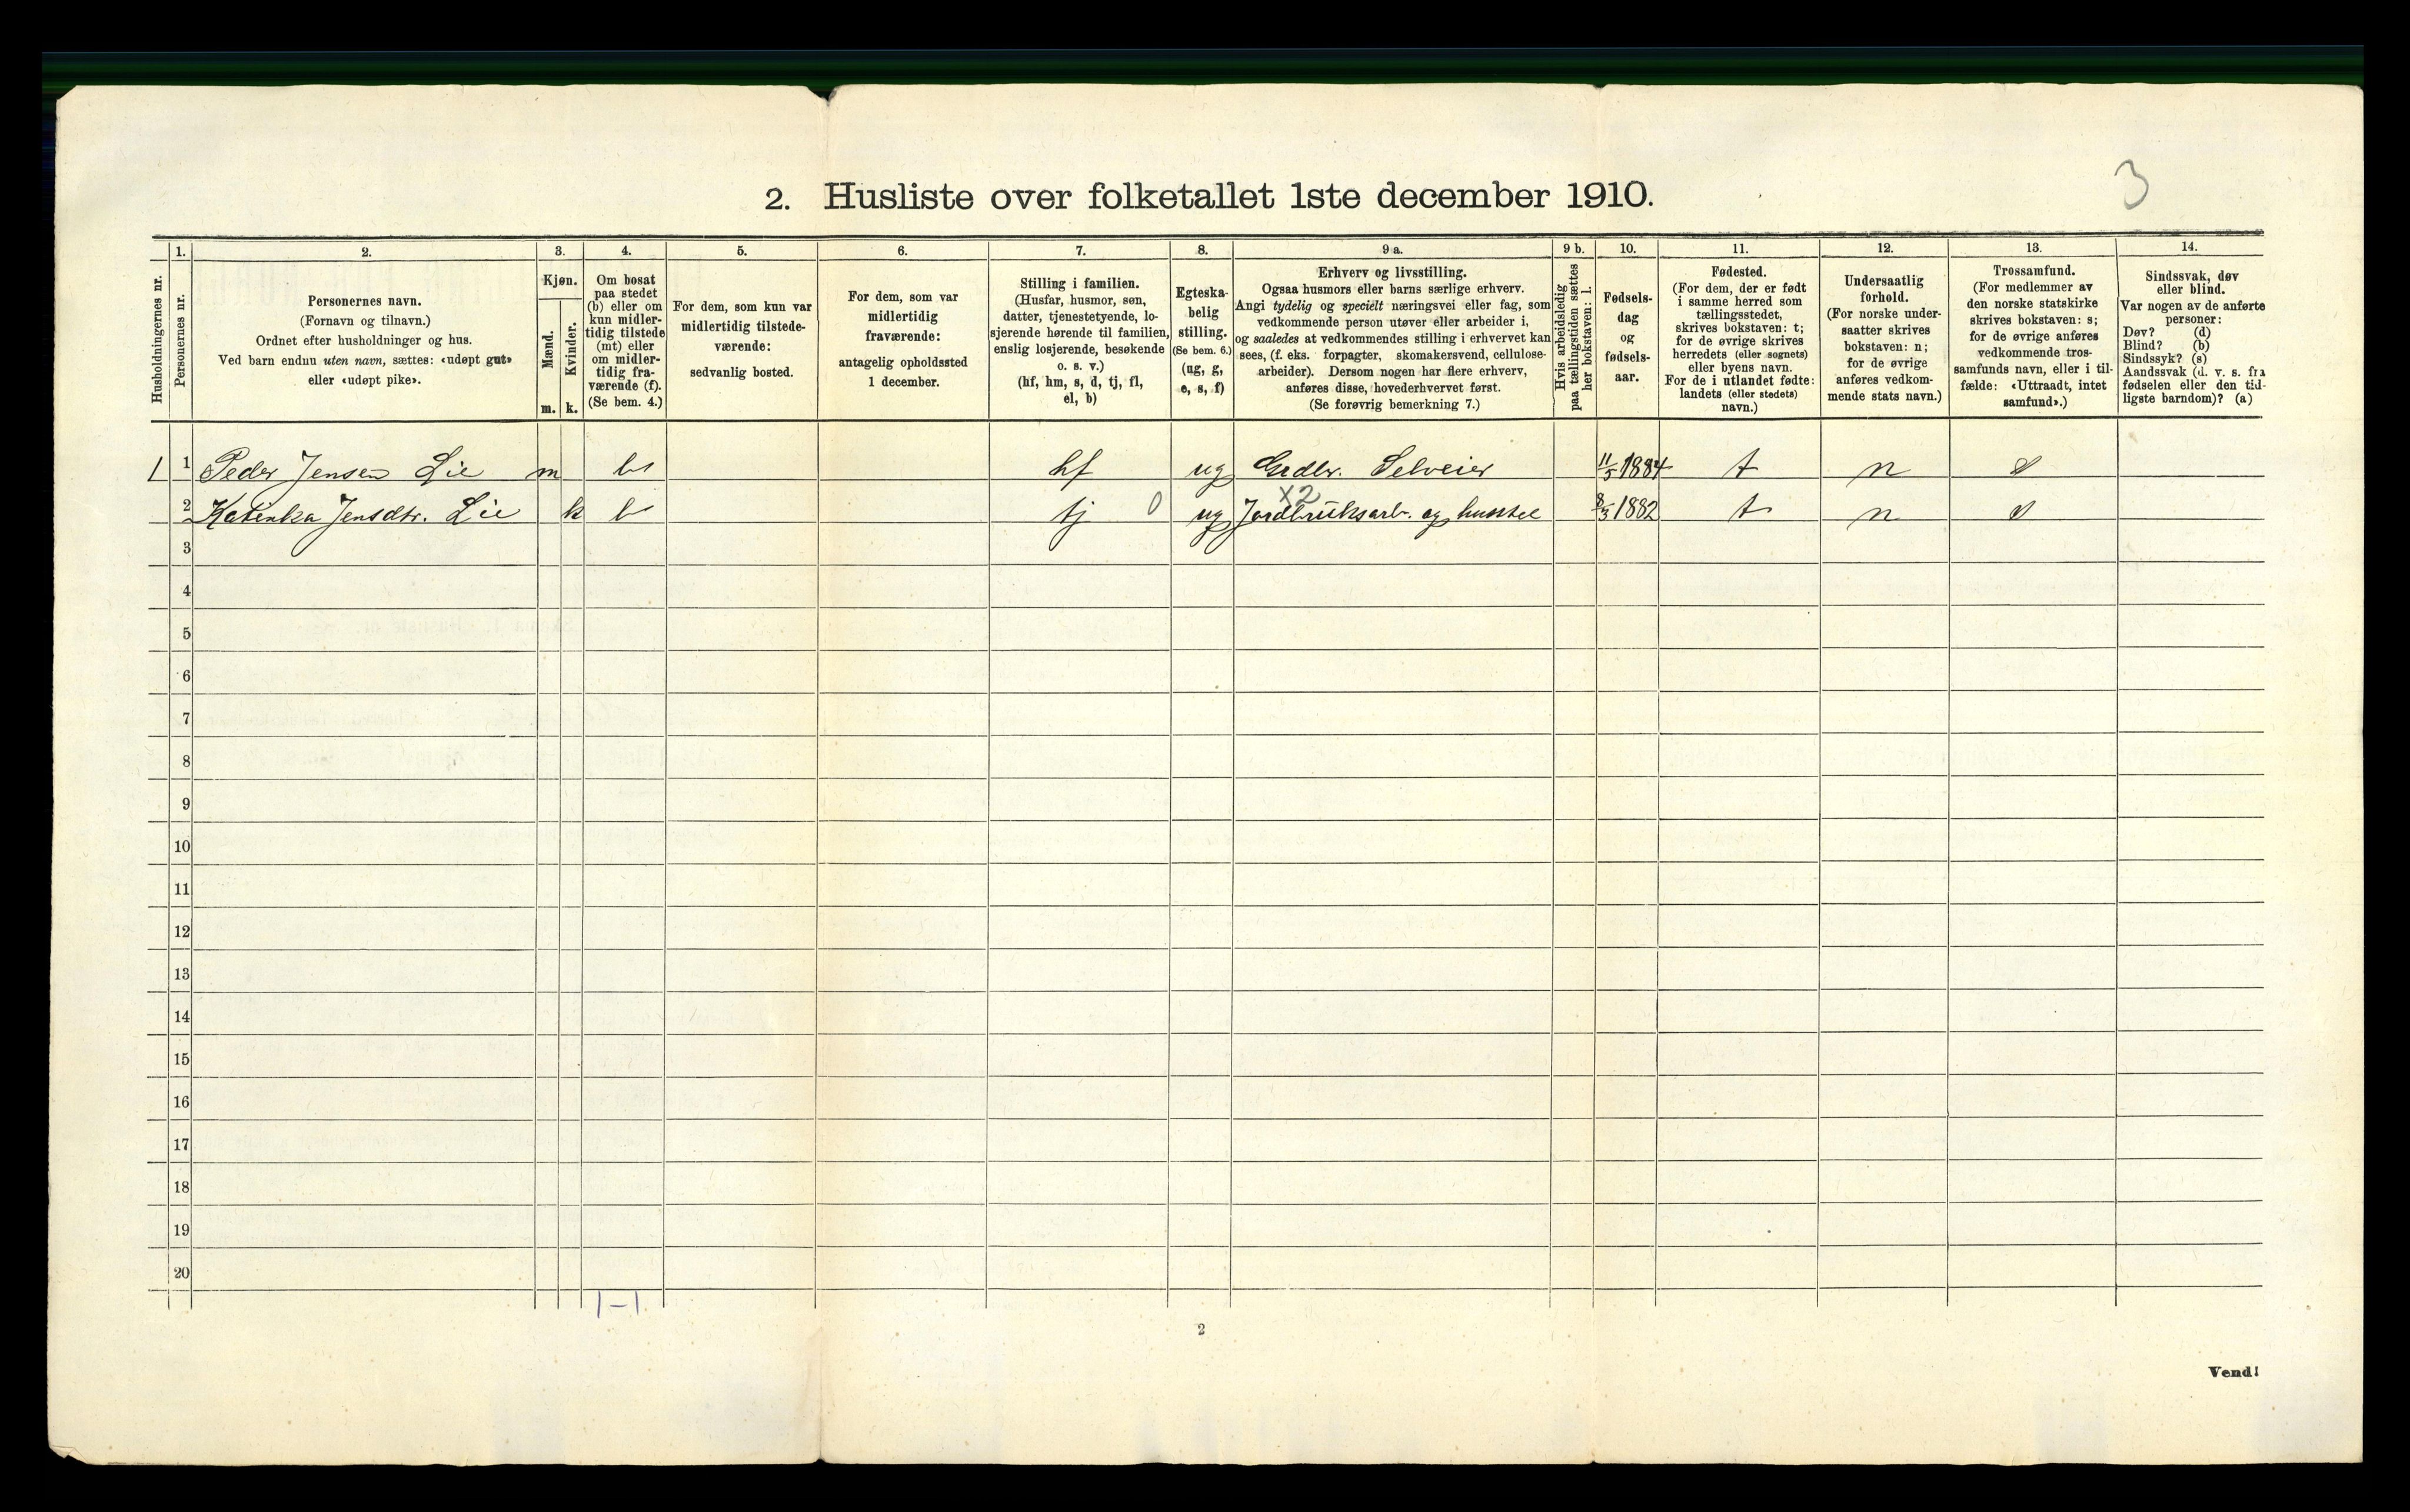 3
2. Husliste over folketallet 1ste december 1910.
Husholdningernes nr.
1.
Personernes nr.
2.
Personernes navn.
(Fornavn og tilnavn.)
Ordnet efter husholdninger og hus.
Ved barn endnu uten navn, sættes: «udøpt gut»
eller «udøpt pike».
3.
Kjøn.
Mænd.
m.
Kvinder.
k.
4.
Om bosat
paa stedet
(b) eller om
kun midler-
tidig tilstede
(mt) eller
om midler-
tidig fra-
værende (f).
(Se bem. 4.)
5.
For dem, som kun var
midlertidig tilstede-
værende:
sedvanlig bosted.
6.
For dem, som var
midlertidig
fraværende:
antagelig opholdssted
1 december.
7.
Stilling i familien.
(Husfar, husmor, søn,
datter, tjenestetyende, lo-
sjerende hørende til familien,
enslig losjerende, besøkende
o. s. v.)
(hf, hm, s, d, tj, fl,
el, b)
8.
Egteska-
belig
stilling.
(Se bem. 6.)
(ug, g,
e, s, f)
9 a.
Erhverv og livsstilling.
Ogsaa husmors eller barns særlige erhverv.
Angi tydelig og specielt næringsvei eller fag, som
vedkommende person utøver eller arbeider i,
og saaledes at vedkommendes stilling i erhvervet kan
sees, (f. eks. forpagter, skomakersvend, cellulose-
arbeider). Dersom nogen har flere erhverv,
anføres disse, hovederhvervet først.
(Se forøvrig bemerkning 7.)
9 b.
Hvis arbeidsledig
paa tællingstiden sættes
her bokstaven: l.
10.
Fødsels-
dag
og
fødsels-
aar.
11.
Fødested.
(For dem, der er født
i samme herred som
tællingsstedet,
skrives bokstaven: t;
for de øvrige skrives
herredets (eller sognets)
eller byens navn.
For de i utlandet fødte:
landets (eller stedets)
navn.)
12.
Undersaatlig
forhold.
(For norske under-
saatter skrives
bokstaven: n;
for de øvrige
anføres vedkom-
mende stats navn.)
13.
Trossamfund.
(For medlemmer av
den norske statskirke
skrives bokstaven: s;
for de øvrige anføres
vedkommende tros-
samfunds navn, eller i til-
fælde: «Uttraadt, intet
samfund».)
14.
Sindssvak, døv
eller blind.
Var nogen av de anførte
personer:
Døv? (d)
Blind? (b)
Sindssyk? (s)
Aandssvak (d. v. s. fra
fødselen eller den tid-
ligste barndom)? (a)
1 1 Peder Jensen Lie m b hf ug Grdbr. Selveier 11/5 1884 t n s
2 Katinka Jensdtr. Lie k b tj 0 ug X2 Jordbruksarb. og husstel 8/3 1882 t n s
3
4
5
6
7
8
9
10
11
12
13
14
15
16
17
18
19
20
1-1
2
Vend!